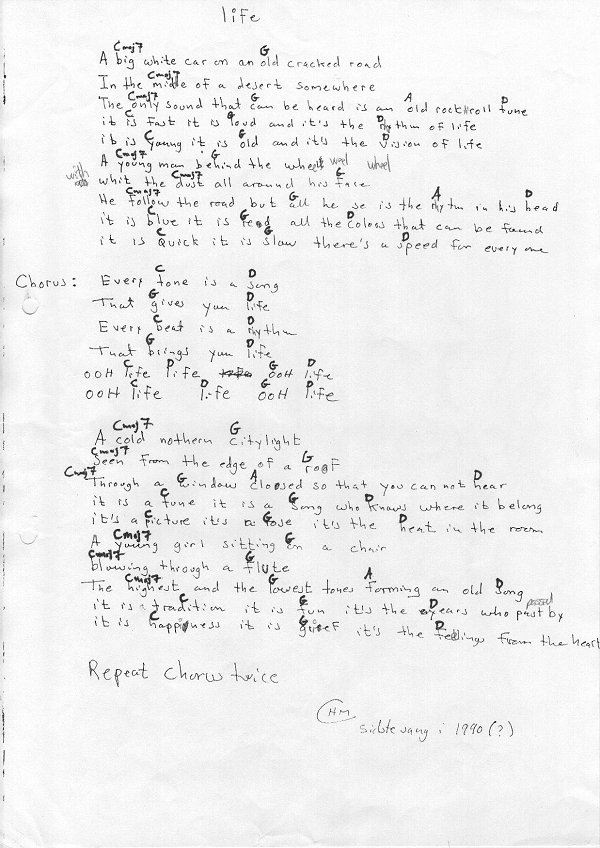 life
Cmaj7 G
A big white car on an old cracked road
Cmaj7
In the midle of a desert somewhere
Cmaj7 G A D
The only sound that can be heard is an old rock'n roll tune
C G D
it is fast it is loud and it's the rhythm of life
C G D
it is young it is old and it's the vision of life
Cmaj7 G
A young man behind the wheel weel wheel
Cmaj7 G
with whit the dust all around his face
Cmaj7 G A D
He follow the road but all he se is the rhytm in his head
C G D
it is blue it is red all the colors that can be found
C G D
it is quick it is slow there's a speed for every one
C D
Chorus: Every tone is a song
G D
That gives you life
C D
Every beat is a rhythm
G D
That brings you life
C D G D
OOH life life OOH life
C D G D
OOH life life OOH life
Cmaj7 G
A cold nothern citylight
Cmaj7 G
Seen from the edge of a roof
Cmaj7 G A D
Through a window cloosed so that you can not hear
C G D
it is a tune it is a song who knows where it belong
C G D
it's a picture it's a rose it's the heat in the room
Cmaj7 G
A young girl sitting on a chair
Cmaj7 G
blowing through a flute
Cmaj7 G A D
The highest and the lowest tones forming an old song
C G D
it is a tradition it is fun it's the years who past by passed
C G D
it is happiness it is grief it's the feelings from the heart
Repeat Chorus twice
HM
sidste vang i 1990 (?)